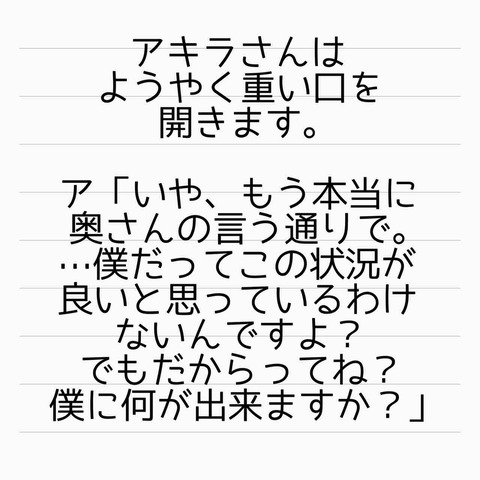 アキラさんは
ようやく重い口を
開きます。
ア「いや、もう本当に
奥さんの言う通りで。
…僕だってこの状況が
良いと思っているわけ
ないんですよ？
でもだからってね？
僕に何が出来ますか？」